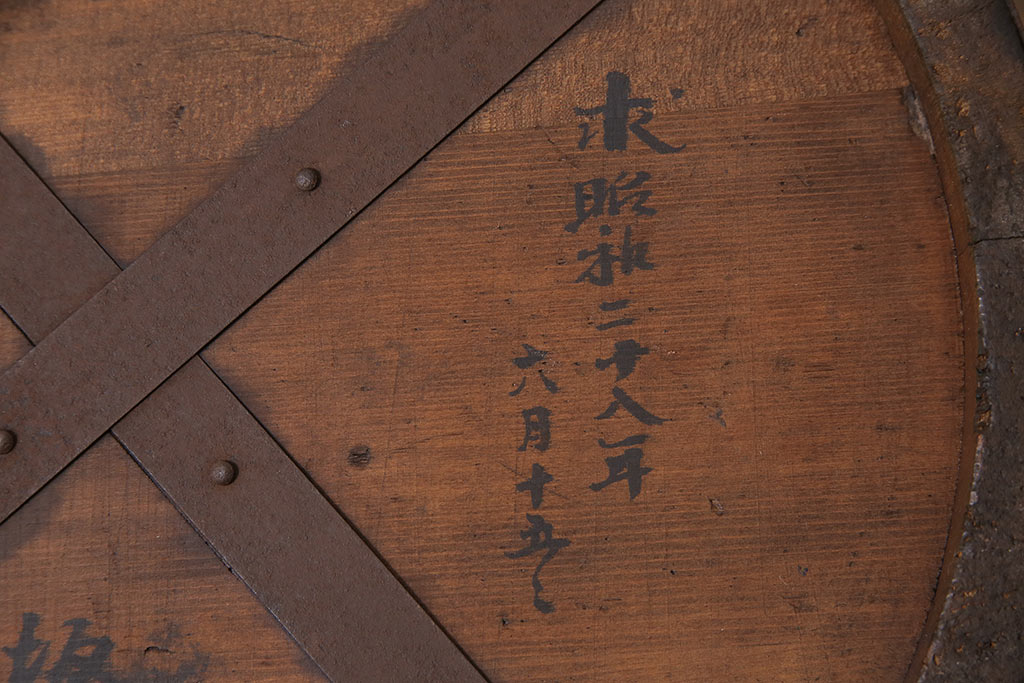 求昭和二十八年
六月十五日